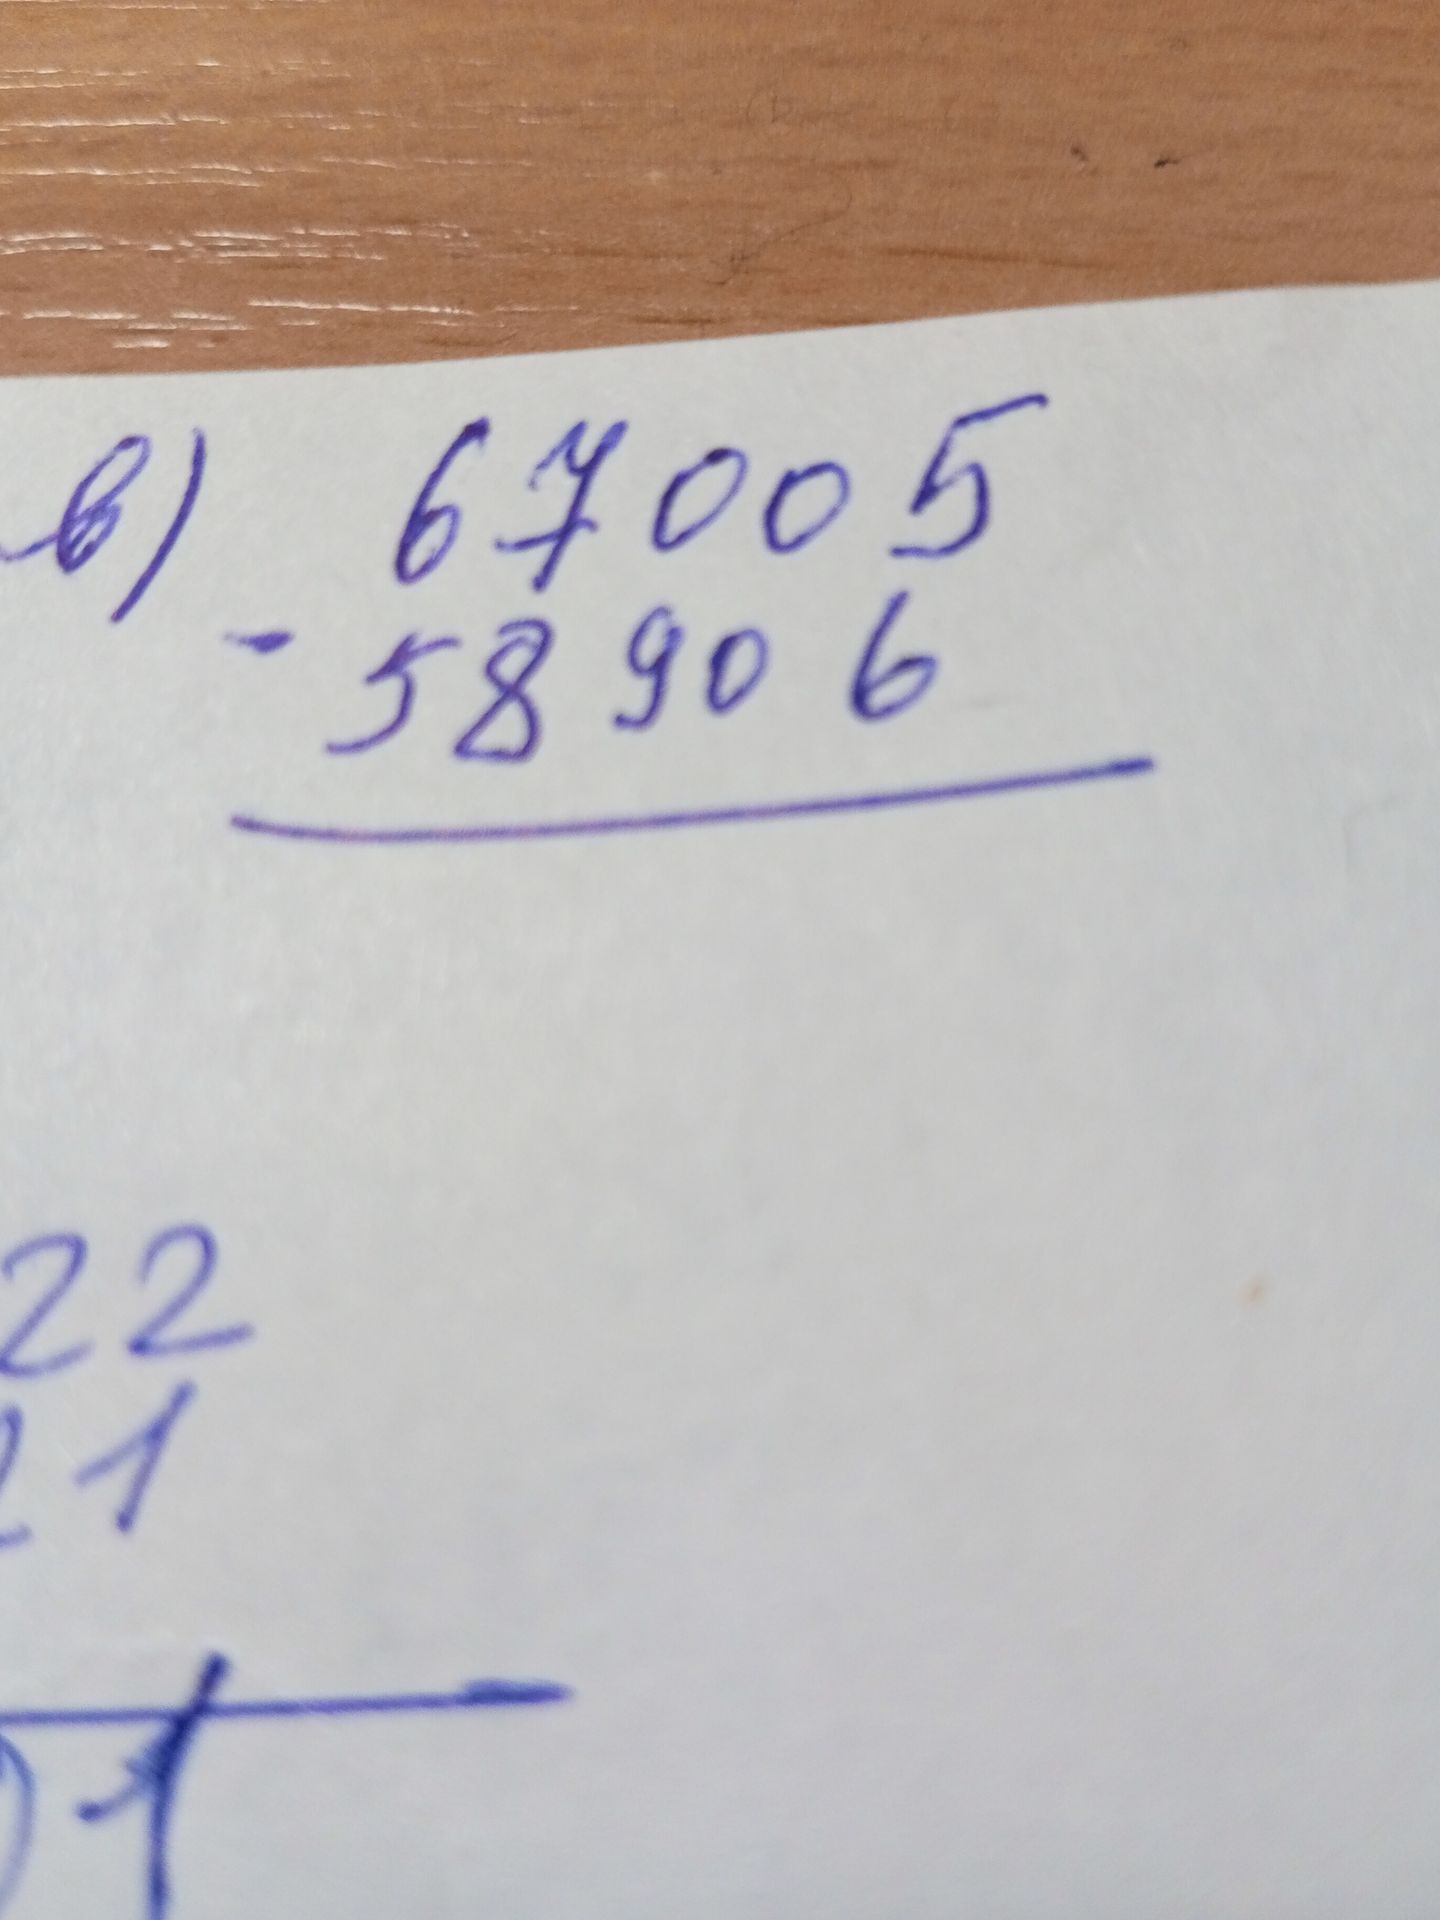 в) 67005
- 58906
22
21
1